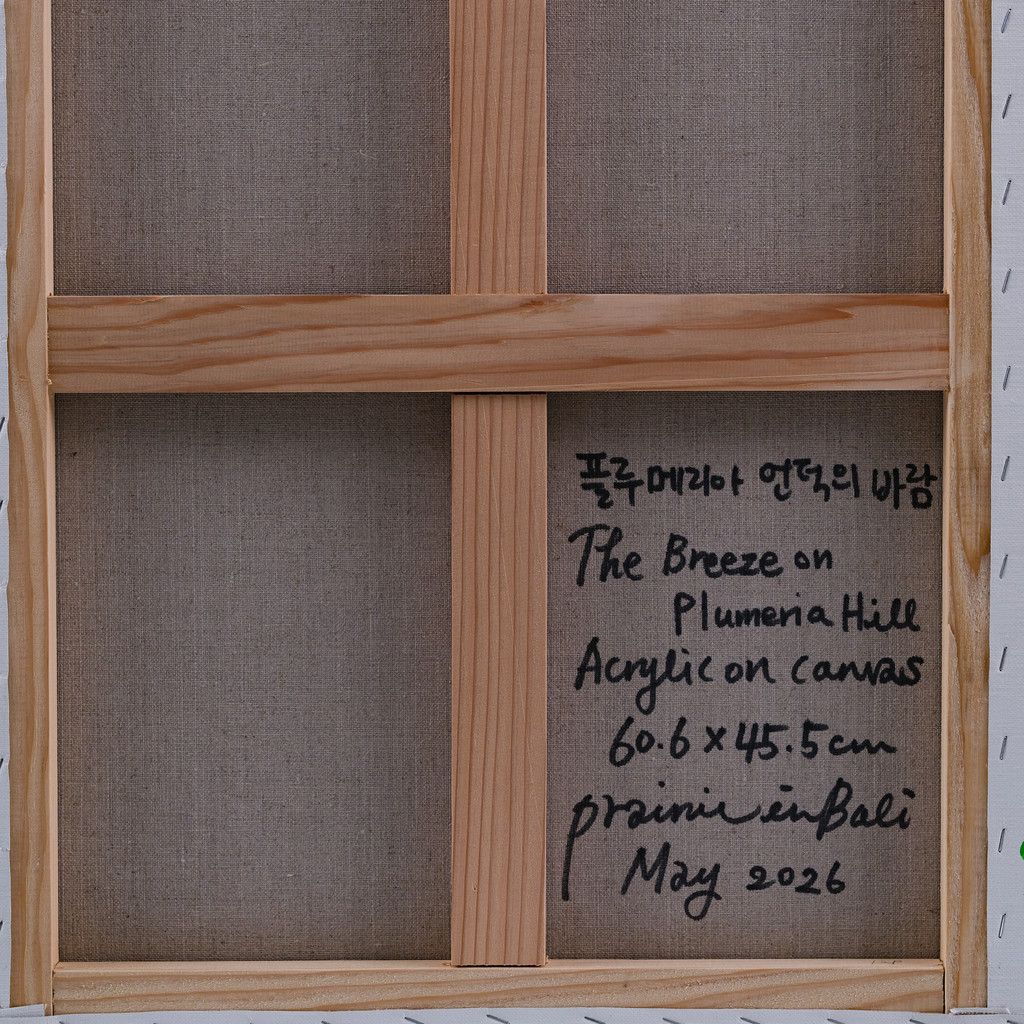 플루메리아 언덕의 바람
The Breeze on
Plumeria Hill
Acrylic on canvas
60.6 x 45.5cm
prairie in Bali
May 2026